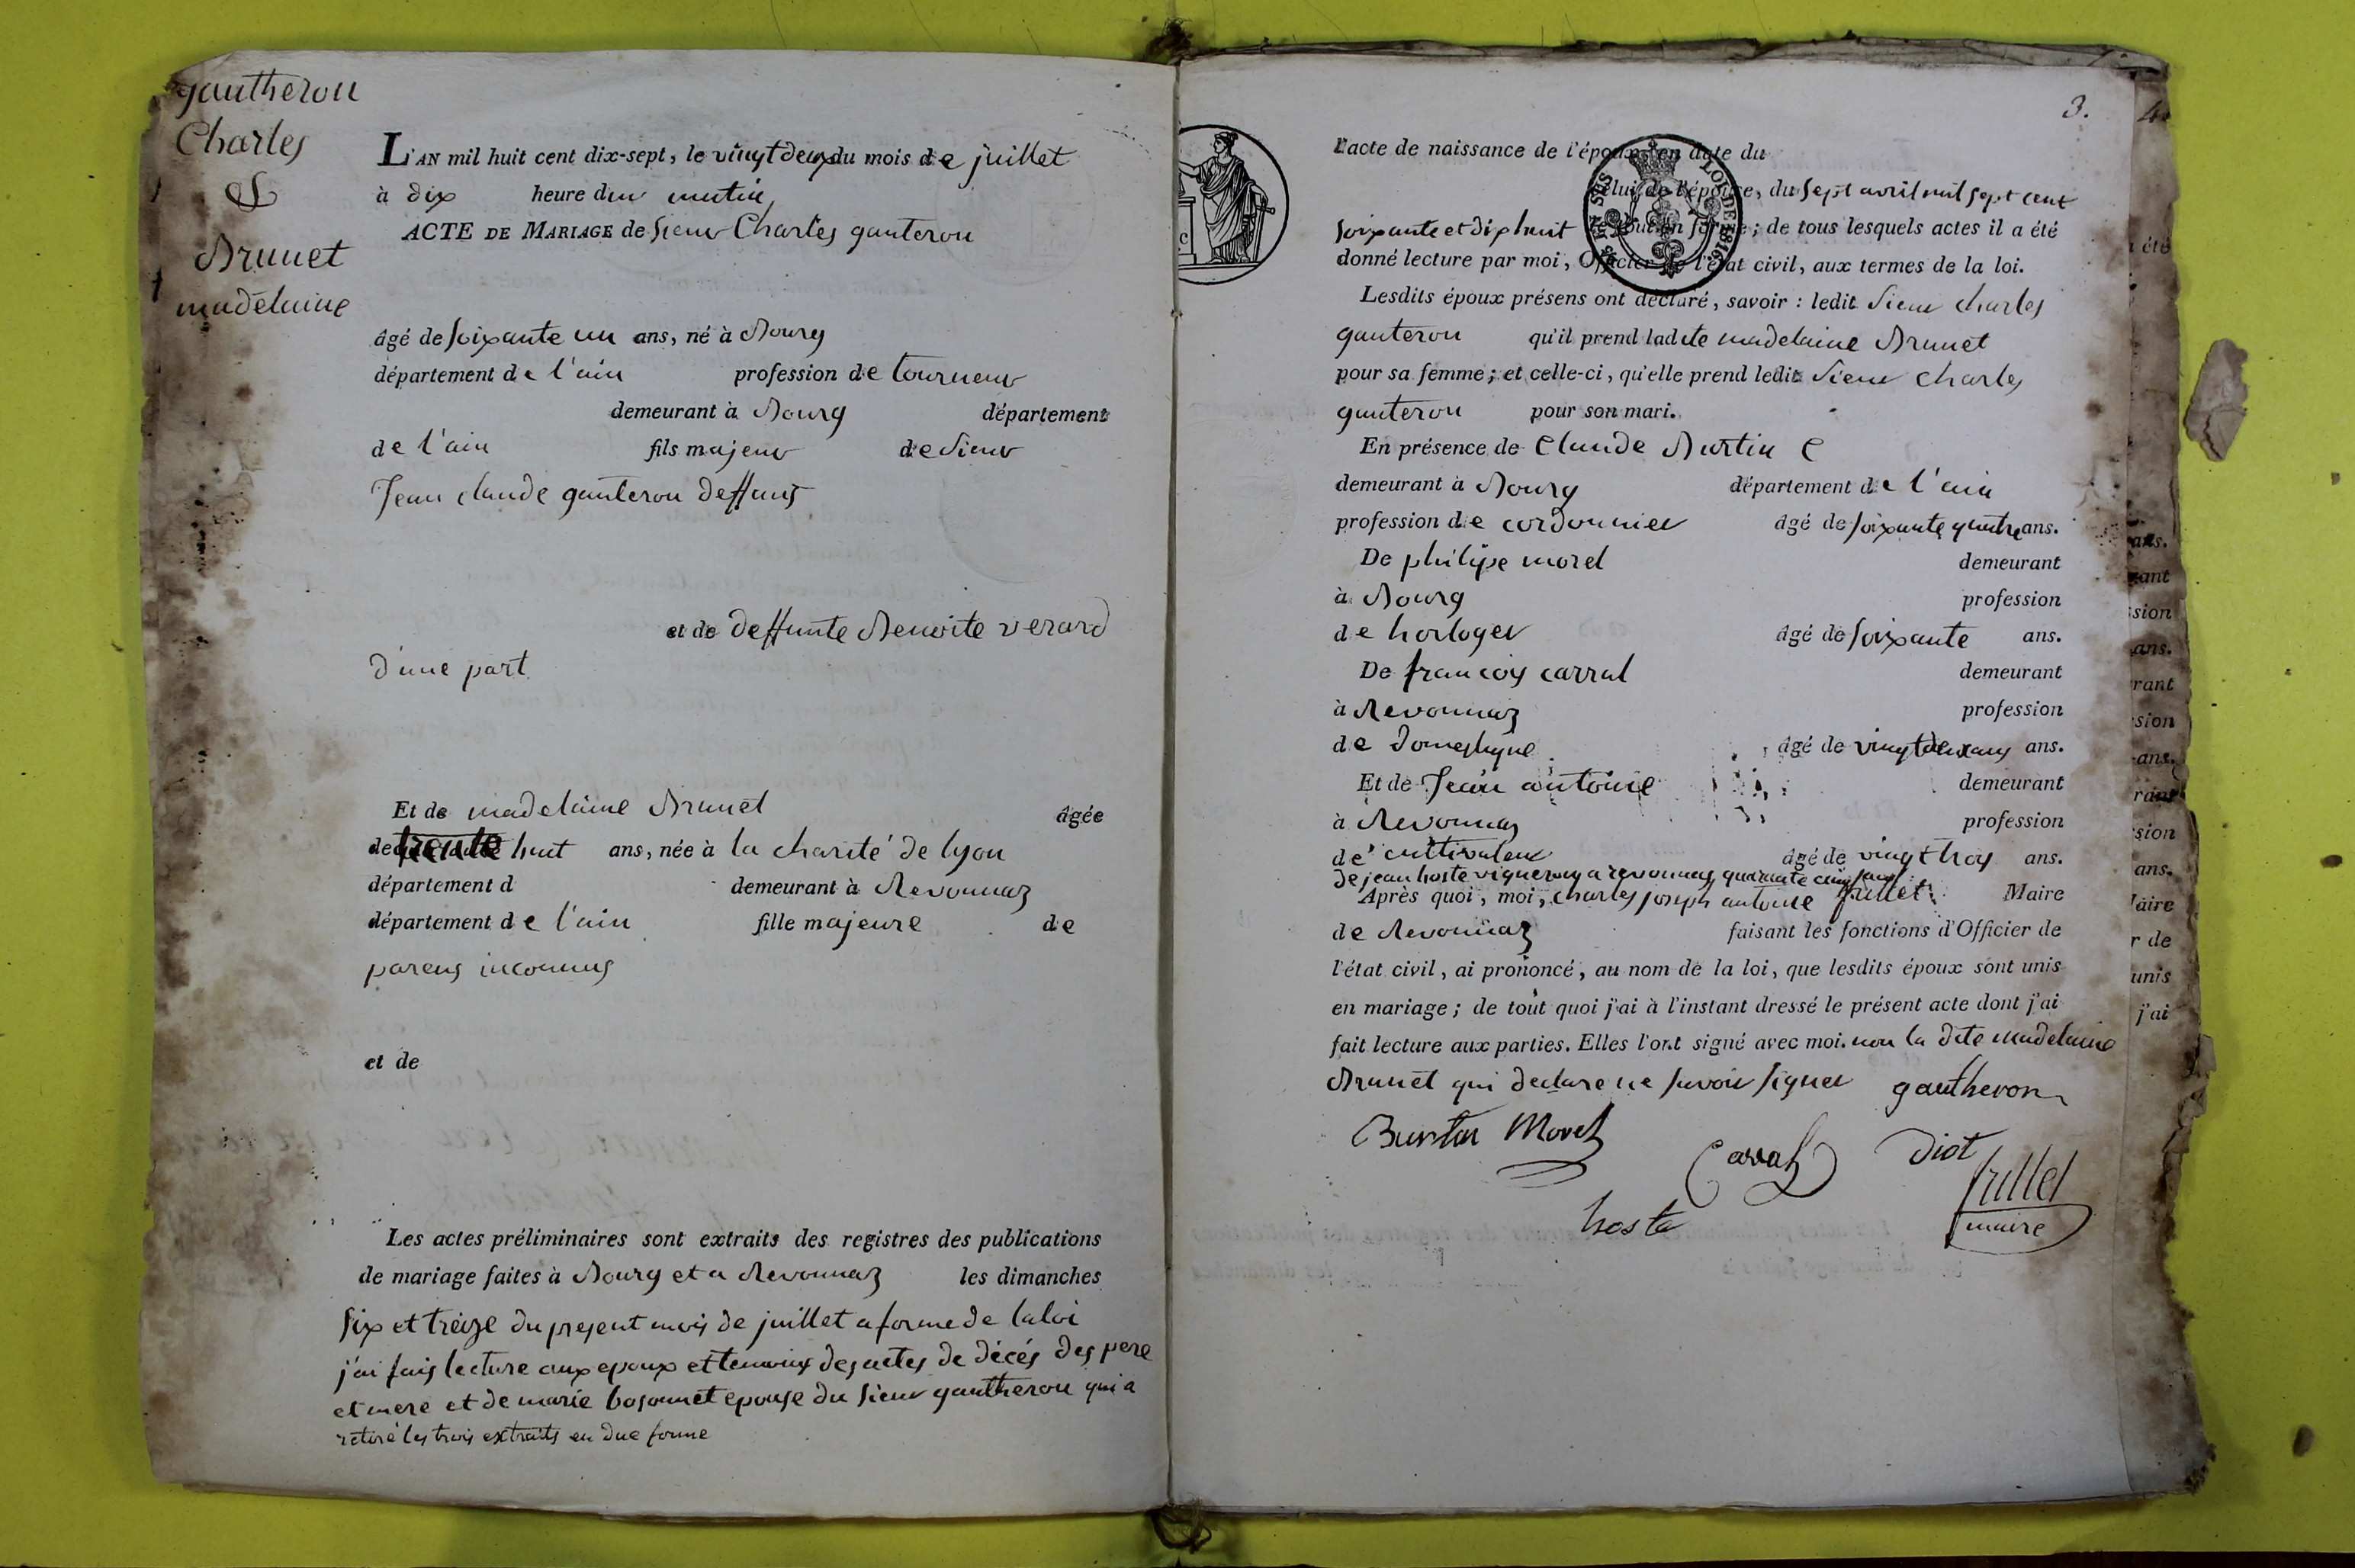 gautheron
Charles
&
Brunet
madelaine
L'AN mil huit cent dix-sept, le vingt deux du mois de juillet
à dix heure du matin
ACTE DE MARIAGE de sieur Charles ganteron
âgé de soixante un ans, né à Bourg
département de l'ain profession de tourneur
demeurant à Bourg département
de l'ain fils majeur de sieur
Jean claude ganteron deffunt
et de deffunte Benoite verard
d'une part
Et de madelaine Brunet âgée
de trente huit ans, née à la charité de lyon
département d demeurant à Revonnaz
département de l'ain fille majeure de
parens inconnus
et de
Les actes préliminaires sont extraits des registres des publications
de mariage faites à Bourg et a Revonnaz les dimanches
six et treize du present mois de juillet a forme de la loi
j'ai fais lecture aux epoux et temoins des actes de décés des pere
et mere et de marie bosonnet epouse du sieur gautheron qui a
retiré les trois extraits en due forme
3.
l'acte de naissance de l'époux, en date du
celui de l'épouse, du sept avril mil sept cent
soixante et dix huit le tout en forme; de tous lesquels actes il a été
donné lecture par moi, Officier de l'état civil, aux termes de la loi.
Lesdits époux présens ont déclaré, savoir : ledit sieur charles
ganteron qu'il prend ladite madelaine Brunet
pour sa femme; et celle-ci, qu'elle prend ledit sieur charles
ganteron pour son mari.
En présence de Claude Burtin
demeurant à Bourg département de l'ain
profession de cordonnier âgé de soixante quatre ans.
De philipe morel demeurant
à Bourg profession
de horloger âgé de soixante ans.
De francois carral demeurant
à Revonnaz profession
de domestique âgé de vingt deux ans ans.
Et de Jean antoine demeurant
à Revonnaz profession
de cultivateur âgé de vingt troy ans.
de jean hoste vigneron a revonnas quarante cinq ans
Après quoi, moi, charles joseph antoine frillet Maire
de Revonnaz faisant les fonctions d'Officier de
l'état civil, ai prononcé, au nom de la loi, que lesdits époux sont unis
en mariage; de tout quoi j'ai à l'instant dressé le présent acte dont j'ai
fait lecture aux parties. Elles l'ont signé avec moi. non la dite madelaine
Brunet qui declare ne savoir signer gautheron
Burtin Morel
Caral Diot
frillet
hoste maire
4
été
ans.
rant
sion
ans.
rant
sion
ans.
rant
sion
ans.
Maire
r de
unis
j'ai